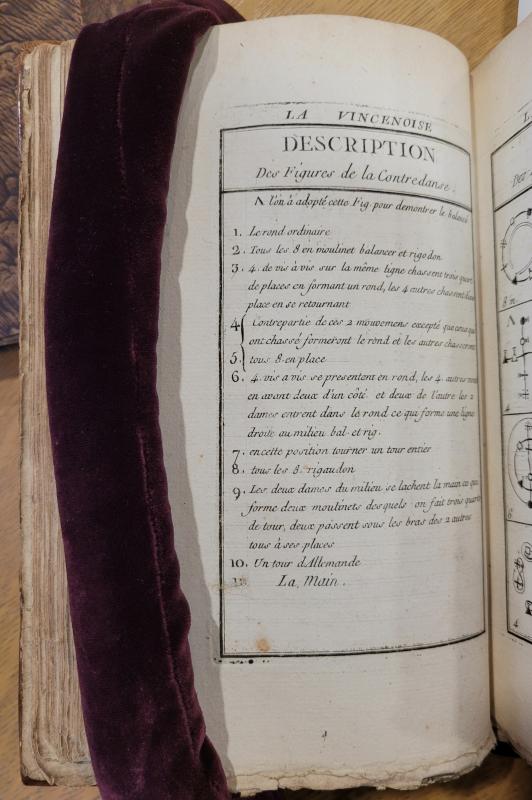 LA VINCENOISE
DESCRIPTION
Des Figures de la Contredanse.
Λ l'on à adopté cette Fig. pour demontrer le balancé
1. Le rond ordinaire
2. Tous les 8 en moulinet balancer et rigodon
3. 4. de vis à vis sur la même ligne chassent trois quart
de places en formant un rond, les 4 autres chassent
place en se retournant
4 Contrepartie de ces 2 mouvemens excepté que ceux qui
ont chassé formeront le rond et les autres chasseront
5. tous 8 en place
6. 4. vis a vis se presentent en rond, les 4. autres vont
en avant deux d'un côté et deux de l'autre les 2
dames entrent dans le rond ce qui forme une ligne
droite au milieu bal. et rig.
7. en cette position tourner un tour entier
8. tous les 8. rigaudon
9. Les deux dames du milieu se lachent la main ce qui
forme deux moulinets desquels on fait trois quarts
de tour, deux passent sous les bras des 2 autres
tous à ses places
10. Un tour d'Allemande
11. La Main.